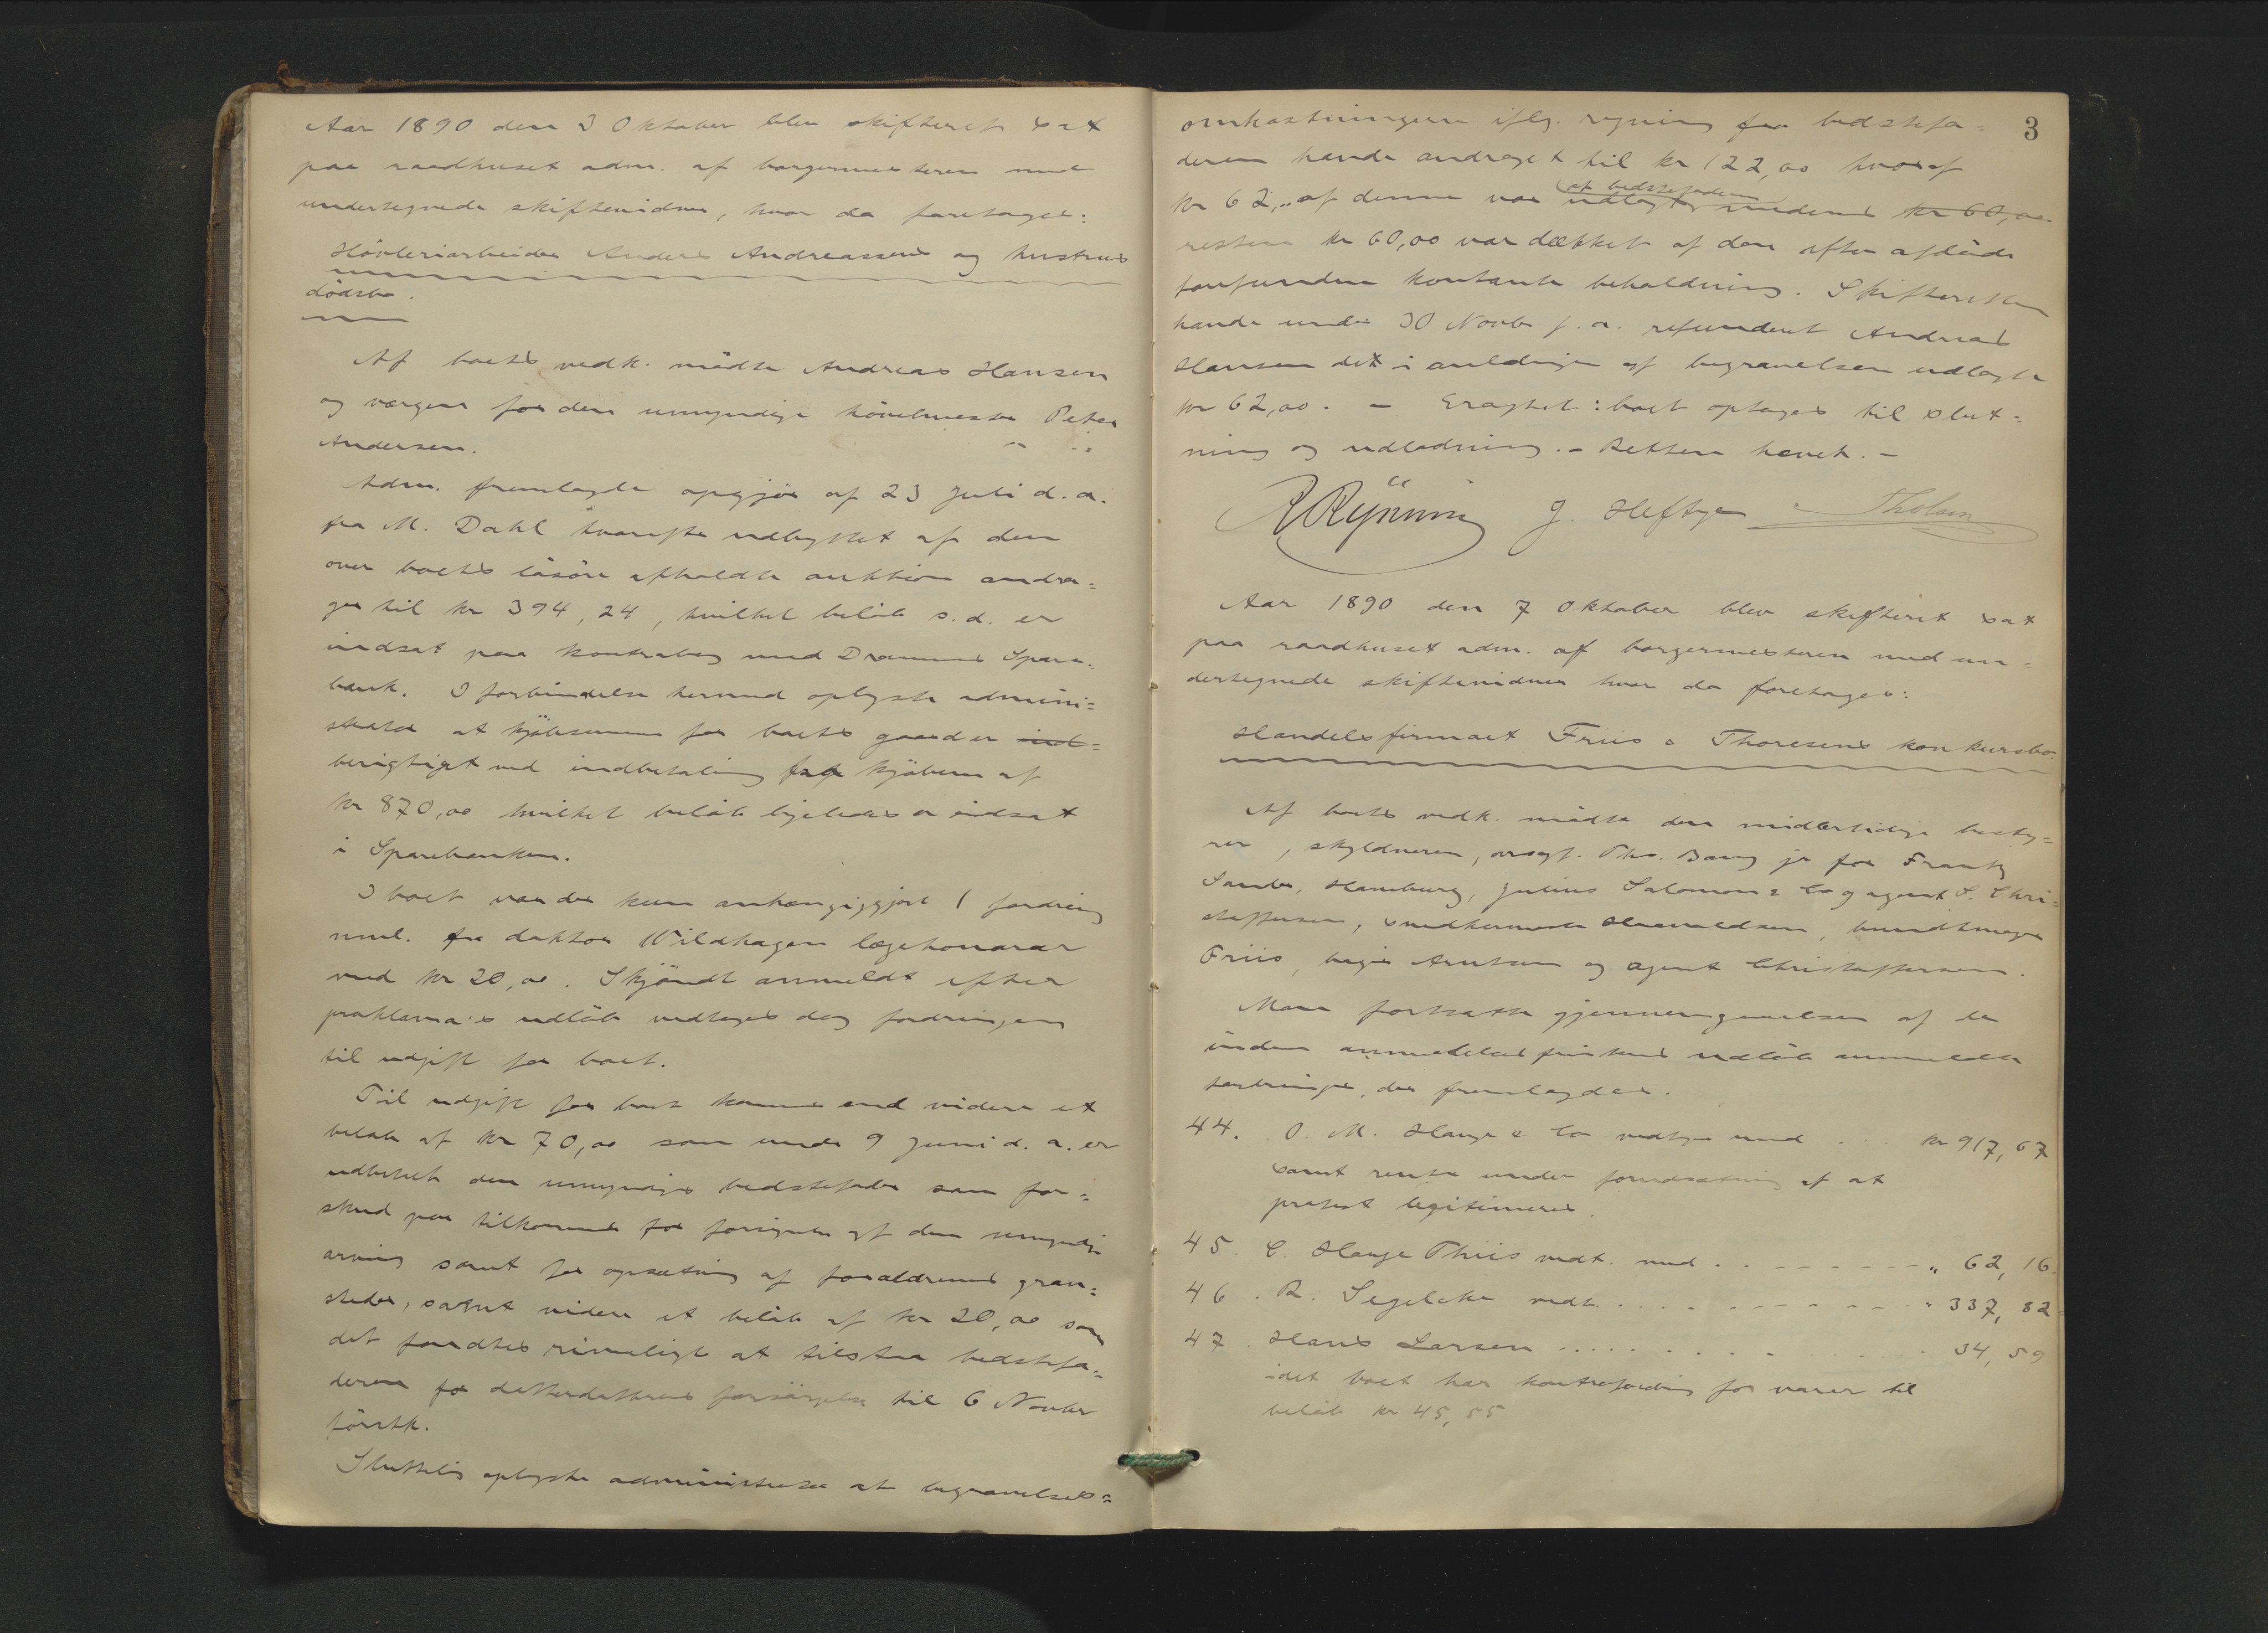 Aar 1890 den 3 Oktober blev skifteret sat
paa raadhuset adm. af borgermesteren med
undertegnede skiftevidner, hvor da foretoges:
Hövleriarbeider Anders Andreassens og hustrus
dödsbo.
Af boets vedk. mödte Andreas Hansen
og værgen for den umyndige hövelmester Peter
Andersen.
Adm. fremlagde opgjör af 23 Juli d. a.
fra M. Dahl hvorefter udbyttet af den
over boets lösöre afholdte auktion andra=
ger til kr 394,24, hvilket belöb s. d. er
indsat paa kontrabog med Drammens Spare-
bank. I forbindelse hermed oplyste admini=
strator at kjöbesummen for boets gaard er ind=
berigtiget ved indbetaling fra kjöberen af
kr 870,00 hvilket belöb ligeledes er indsat
i Sparebanken.
I boet var der kun anhængiggjort 1 fordring
neml. fra doktor Wildhagen lægehonorar
med kr 20,00. Skjöndt anmeldt efter
proklama's udlöb vedtoges dog fordringen
til udgift for boet.
Til udgift for boet kommer end videre et
belöb af kr 70,00 som under 9 Juni d. a. er
udbetalt den umyndiges bedstefader som for=
skud paa tilkommende for forsörgelse af den umyndige
arving samt for opsætning af forældrenes grav=
steder, samt videre et belöb af kr 20,00 som
det fandtes rimeligt at tilstaa bedstefa=
deren for datterdatterens forsörgelse til 6 Novbr
förstk.
Sluttelig oplyste administrator at begravelses=
3
omkostningerne iflg. regning fra bedstefa=
deren havde andraget til kr 122,00 hvoraf
kr 62,,, af denne var udlagt af bedstefaderen medens kr 60,00
resten kr 60,00 var dækket af den efter afdöde
forefundne kontante beholdning. Skifteretten
havde under 30 Novbr f. a. refunderet Andreas
Hansen det i anledning af begravelsen udlagte
kr 62,00. - Eragtet: boet optages til slut=
ning og udlodning. - Retten hævet. -
R Rÿnning J. Heftye Tholsen
Aar 1890 den 7 Oktober blev skifteret sat
paa raadhuset adm. af borgermesteren med un=
dertegnede skiftevidner hvor da foretoges:
Handelsfirmaet Friis & Thoresens konkursbo.
Af boets vedk. mödte den midlertidige besty=
rer, skyldneren, ovrsgf. Ths. Bang jr for Frantz
Hamburg, Julius Salomon & Co og agent S. Chri=
stoffersen, bundtmager
Friis, og agent Christoffersen.
Man fortsatte gjennemgaaelsen af de
inden anmeldelsesfristens udlöb anmeldte
fordringer, der fremlagdes.
44. O. M. Hauge & Co vedtages med . . . kr 917,67
samt rente under forudsætning af at
protest legitimeres.
45. C. Hauge Thiis vedt. med . - - - - - - - „ 62,16
46. R. Segelcke vedt. . . . . - - - - - „ 337,82
47. Hans Larsen . . . . . . . . . . . 34,59
idet boet har kontrafordring for varer til
belöb kr 45,55